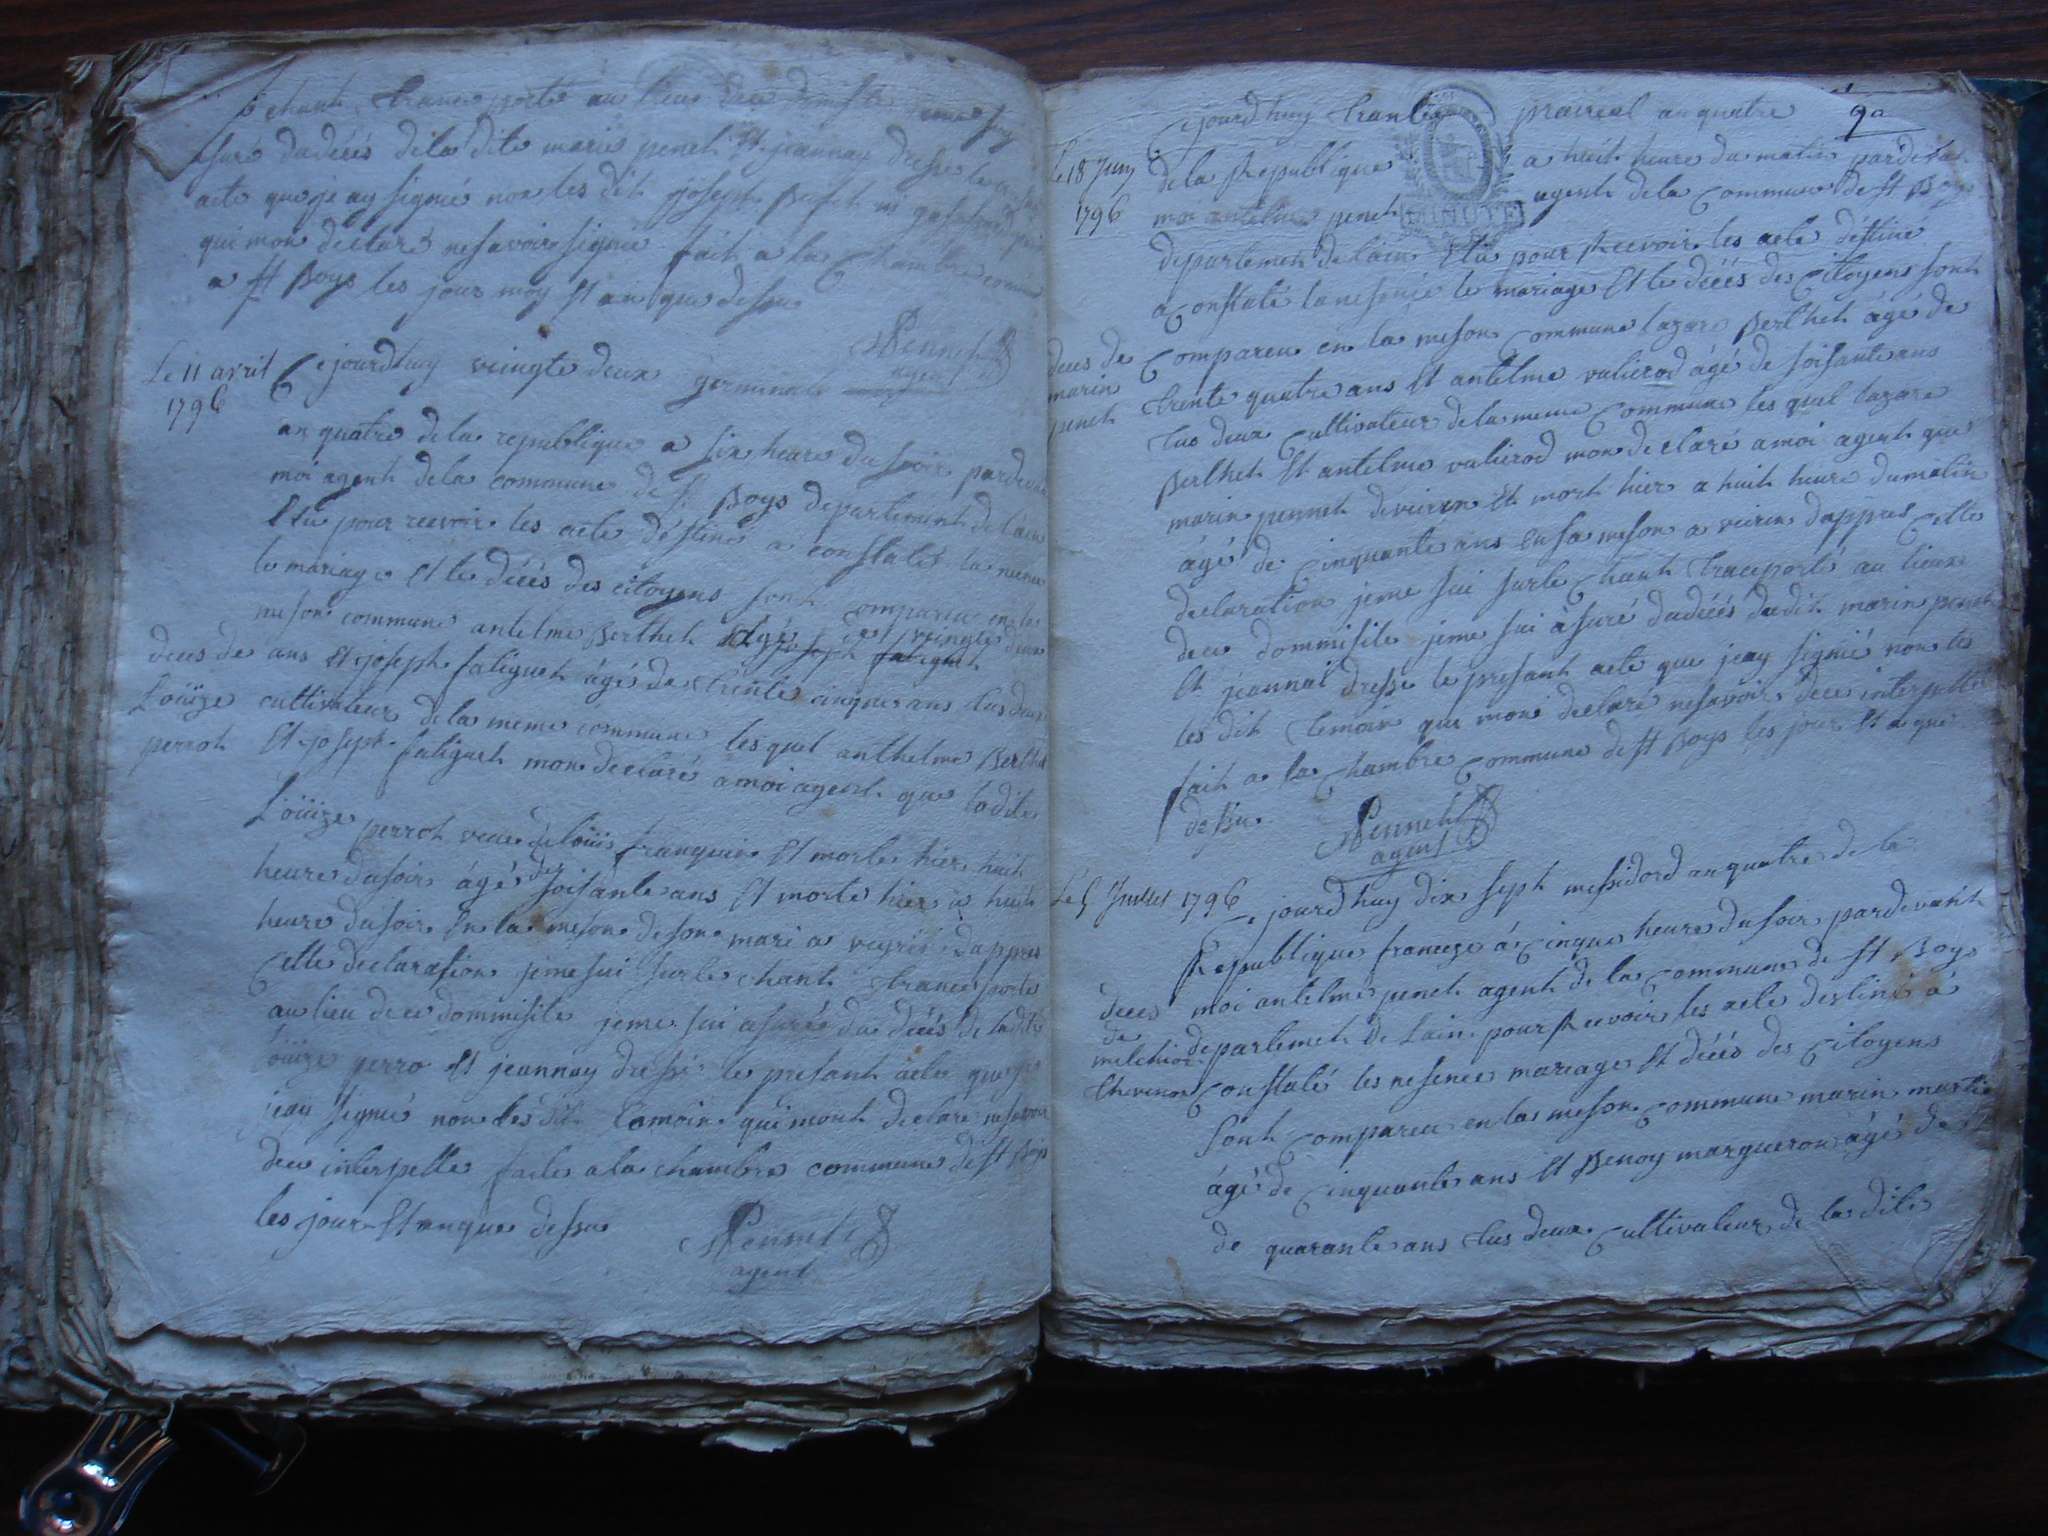 chant trancporté au lieu dece domisile
asuré dudéćés de la dite marie penet Et jeannay dressé le
acte que je ay signié non les dit joseph
qui mon declaré nesavoir signié fait a la Chambre commune
a St Boys les jour moy Et an que dessu
Pennet
agent
Le 11 avril
1796
Cejourdhuy veingte deux germinal
an quatre de la republique a six heure du soir pardevan
moi agent de la commune de St Boys departement de lain
Elu pour recevoir les acte déstiné a constaté la nesence
le mariage Et le déćés des citoyens sont compareu en la
meson commune antelme Berthet agé de veingte deux
deces de
Loüize
perrot
ans Et joseph fatiguet âgé de trente cinque ans tus deux
cultivateur de la meme commune lesquel anthelme Berthet
Et joseph fatiguet mon declaré a moi agent que ladite
Loüize perrot veue de loüis franquin Et morte hier huit
heure dusoir âgé de soisante ans Et morte hier a huit
heure dusoir En la meson de son mari a veyrin dappres
Cette declaration jeme sui surle chant trancporté
au lieu dece dommisile jeme sui asuré du déćés de ladite
loüize perro Et jeannay dressé le presant acte que je
jeai signié non les dit temoin qui mont declaré nesavoir
deu interpellé faite a la chambre commune de St Boys
les jour Et an que dessu
Pennet
agent
9a
Cejourdhuy trante prairéal an quatre
Le 18 Juin
1796
de la Republique a huit heure du matin pardevan
moi antelme penet MINUTE agent de la Commune de St Boys
departement de lain Elu pour Recevoir les acte déstiné
a Constaté la nesence le mariage Et le déćés des Citoyens sont
deces de
marin
penet
Compareu en la meson Commune lazare Berthet âgé de
trente quatre ans Et antelme valierod âgé de soisante ans
tus deux Cultivateur de la meme Commune les quel lazare
Berthet Et antelme valierod mon declaré a moi agent que
marin pennet deveirin Et mort hier a huit heure dumatin
âgé de Cinquante ans En sa meson a veirin dappres Cette
declaration jeme sui surle Chant tracporté au lieu
dece dommisile jeme sui âsuré dudéćés dudit marin penet
Et jeannai dressé le presant acte que jeay signié non les
les dit temoin qui mon declaré nesavoir deces interpellé
fait a la Chambre Commune de St Boys les jour Et a que
dessu
Pennet
agent
Le 5 Juillet 1796
Cejourdhuy dix sept messidord an quatre de la
Republique franceze â Cinque heure dusoir pardevant
deces
de
melchior
thevenon
moi antelme penet agent de la Commune de St Boys
departement de Lain pour Recevoir les acte destiné â
Constaté les nesence mariage Et déćés des Citoyens
Sont Compareu en la meson Commune marin martin
âgé de Cinquante ans Et Benoy margueron âgé de
de quarante ans tus deux Cultivateur de la dite